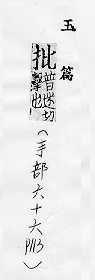 玉篇
批普迷切
擊也
(手部六十六 P113)